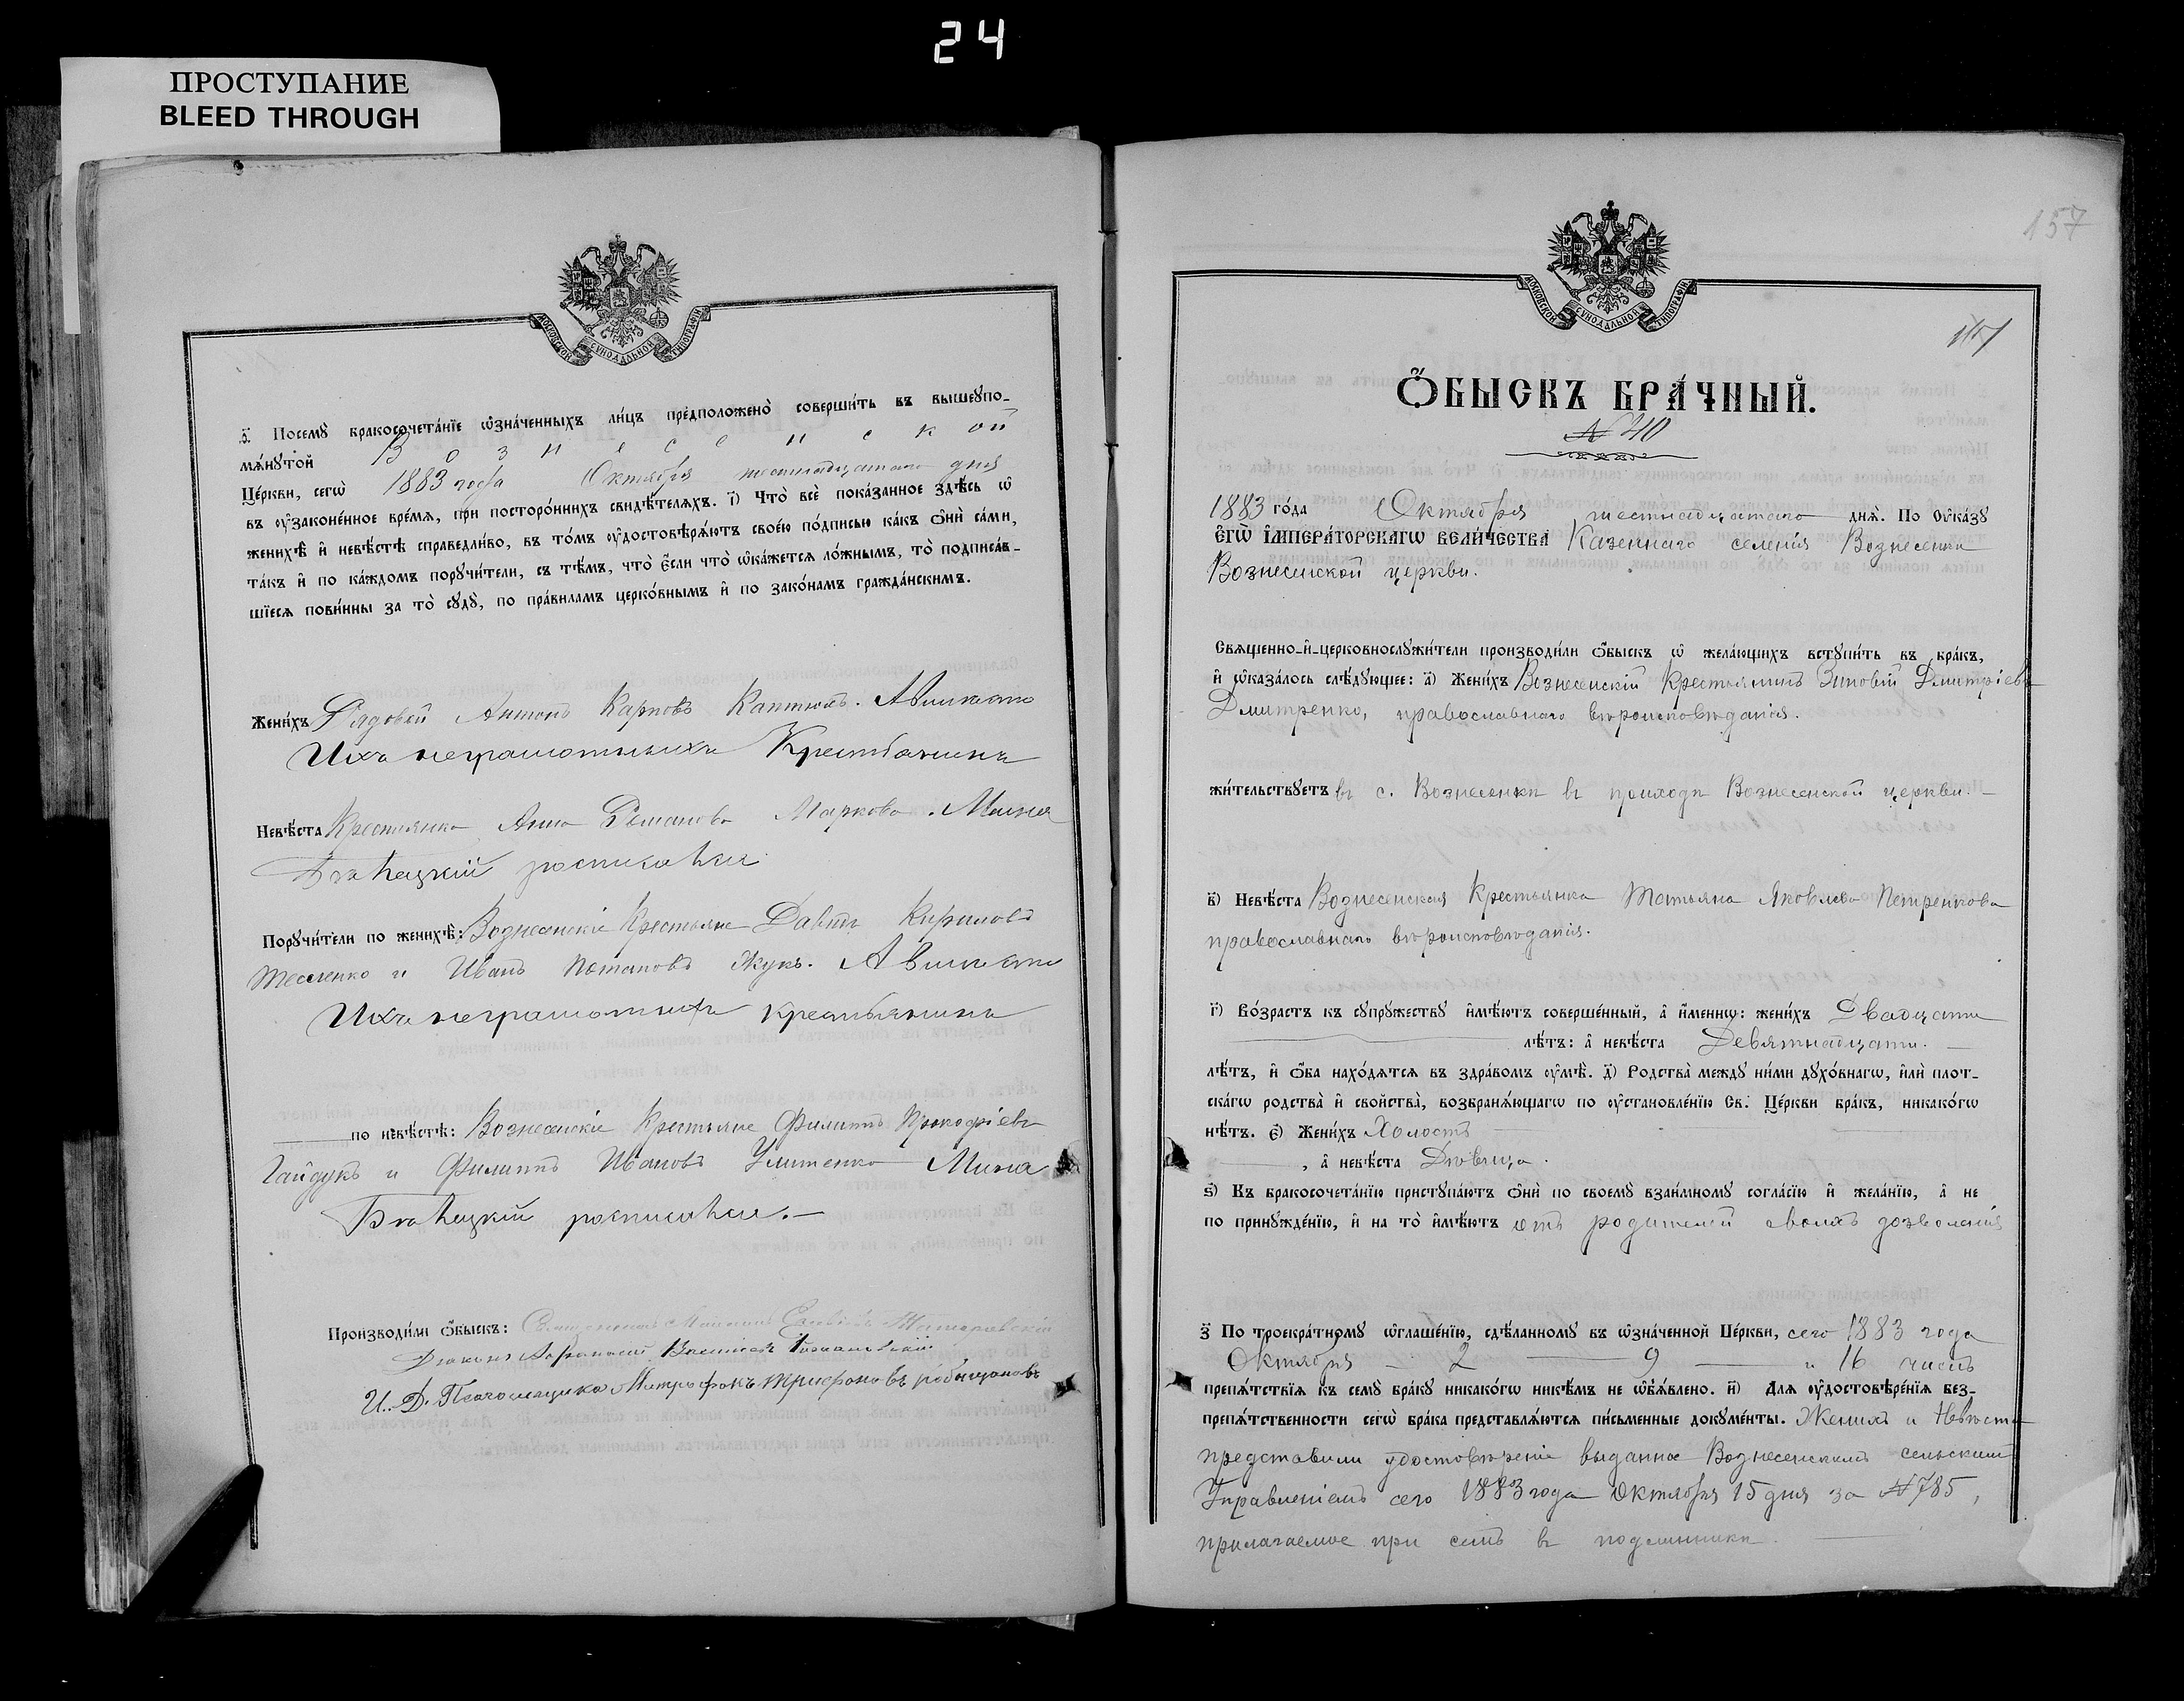 24
ПРОСТУПАНИЕ
BLEED THROUGH
МОСКОВСКОЙ СѴНОДАЛЬНОЙ ТИПОГРАФІИ
Посемꙋ̀ бракосочета́нїе ѡ҆зна́ченныхъ ли́цъ предположено̀ соверши́ть въ вышеꙋпо-
мѧ́нꙋтой Вознесенской
Це́ркви, сегѡ̀ 1883 года Октября шестнадцатаго дня
въ ᲂу҆зако́нене́нное вре́мѧ, при посторо́ннихъ свидѣ́телѧхъ. і҃) Что̀ всѐ пока́занное здѣ́сь ѡ҆
женихѣ̀ и҆ невѣ́стѣ справедли́во, въ то́мъ ᲂу҆достовѣрѧ́ютъ свое́ю по́дписью ка́къ ѻ҆нѝ са́ми,
та́къ и҆ по ка́ждомъ порꙋчи́тели, съ тѣ́мъ, что̀ є҆́сли что̀ ѡ҆ка́жется ло́жнымъ, то̀ подписа́в-
шїесѧ пови́нны за то̀ сꙋдꙋ̀, по пра́виламъ церко́внымъ и҆ по зако́намъ гражда́нскимъ.
Жени́хъ Рядовой Антонъ Карповъ Каптюхъ. А вмисто
Ихъ неграмотныхъ Крестьянинъ
Невѣ́ста Крестьянка Анна Романова Маркова. Мина
Бѣлецкій росписался
Порꙋчи́тели по женихѣ̀: Вознесенскіе Крестьяне Давидъ Кириловъ
Тесленко и Иванъ Потаповъ Жукъ. А вмисто
Ихъ неграмотныхъ крестьянинъ
по невѣ́стѣ: Вознесенскіе Крестьяне Филиппъ Прокофіевъ
Гайдукъ и Филиппъ Ивановъ Улитенко Мина
Бѣлецкій росписался.
Производи́ли ѻ҆́быскъ: Священникъ
Діаконъ Аѳанасій
И. Д. Псаломщика Митрофанъ Трифоновъ
157
МОСКОВСКОЙ СѴНОДАЛЬНОЙ ТИПОГРАФІИ
Ѻ҆́БЫСКЪ БРА́ЧНЫЙ.
№ 40
1883 го́да Октября шестнадцатаго днѧ̀. По ᲂу҆ка́зꙋ
є҆гѡ̀ і҆мпера́торскагѡ вели́чества Казеннаго селенія Вознесенки
Вознесенской церкви.
Свѧще́нно-и҆-церковнослꙋжи́тели производи́ли ѻ҆́быскъ ѡ҆ жела́ющихъ встꙋпи́ть въ бра́къ,
и҆ ѡ҆каза́лось слѣ́дꙋющее: а҃) Жени́хъ Вознесенскій Крестьянинъ Зиновій Дмитріевъ
Дмитренко, православнаго вѣроисповѣданія.
жи́тельствꙋетъ въ с. Вознесенки въ приходи Вознесенской церкви.
в҃) Невѣ́ста Вознесенская Крестьянка Татьяна Яковлева Петренкова
православнаго вѣроисповѣданія.
г҃) Во́зрастъ къ сꙋпрꙋ́жествꙋ и҆мѣ́ютъ соверше́нный, а҆ и҆́меннѡ: жени́хъ Двадцати
лѣ́тъ: а҆ невѣ́ста Девятнадцати.
лѣ́тъ, и҆ ѻ҆́ба нахо́дятсѧ въ здра́вомъ ᲂу҆мѣ̀. д҃) Родства̀ междꙋ̀ ни́ми дꙋхо́внагѡ, и҆лѝ плот-
ска́гѡ родства̀ и҆ сво́йства̀, возбранѧ́ющагѡ по ᲂу҆становле́нїю Св: Це́ркви бра́къ, никако́гѡ
нѣ́тъ. є҃) Жени́хъ Холостъ
, а҆ невѣ́ста Дѣвица.
ѕ҃) Къ бракосочета́нїю пристꙋпа́ютъ ѻ҆нѝ по своемꙋ̀ взаи́мномꙋ согла́сїю и҆ жела́нїю, а҆ не
по принꙋжде́нїю, и҆ на то̀ и҆мѣ́ютъ отъ родителей своихъ дозволенія
з҃ По троекра́тномꙋ ѡ҆глаше́нїю, сдѣ́ланномꙋ въ ѡ҆зна́ченной Це́ркви, сего 1883 года
Октября – 2 – 9 – и 16 числъ
препѧ́тствїѧ къ семꙋ̀ бра́кꙋ никако́гѡ никѣ́мъ не ѡ҆б̾ѧ́влено. и҃) Для ᲂу҆достовѣре́нїѧ без-
препѧ́тственности сегѡ̀ бра́ка представлѧ́ются пи́сьменные докꙋме́нты. Женихъ и Невѣста
представили удостовѣреніе выданное Вознесенскимъ сельскимъ
Управленіемъ сего 1883 года Октября 15 дня за № 785,
прилагаемое при семъ въ подлинники.